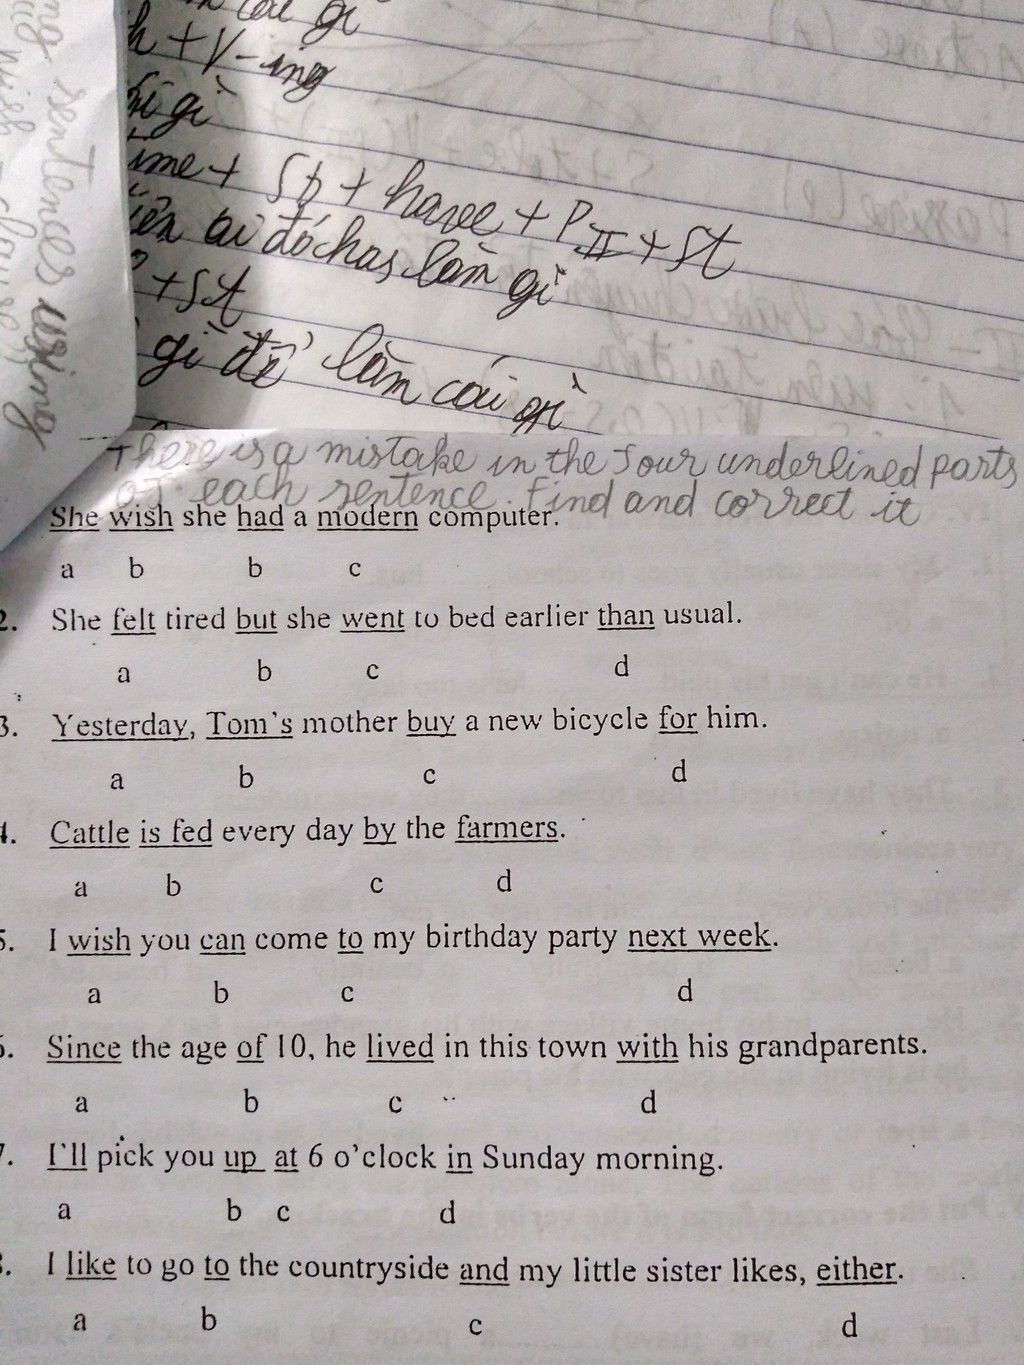 cái gì
h + V-ing
gì
ime + Sb + have + PII + St
đó has làm gì
+ St
gì để làm cái gì
sentences using
There is a mistake in the four underlined parts
of each sentence. Find and correct it
She wish she had a modern computer.
a b b c
2. She felt tired but she went to bed earlier than usual.
a b c d
3. Yesterday, Tom's mother buy a new bicycle for him.
a b c d
4. Cattle is fed every day by the farmers.
a b c d
5. I wish you can come to my birthday party next week.
a b c d
6. Since the age of 10, he lived in this town with his grandparents.
a b c d
7. I'll pick you up at 6 o'clock in Sunday morning.
a b c d
8. I like to go to the countryside and my little sister likes, either.
a b c d